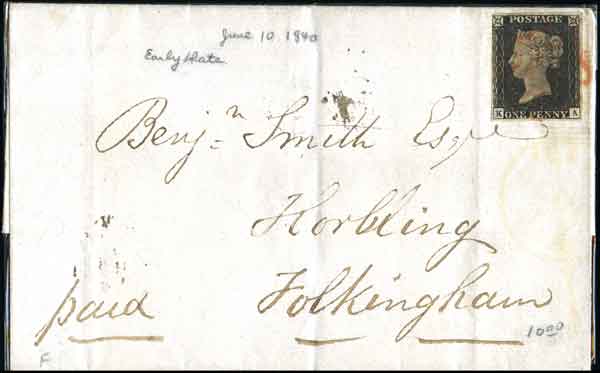 June 10 1840
Early Date
POSTAGE
K A
ONE PENNY
Benjn Smith Esqr
Horbling
paid Folkingham
1000
F